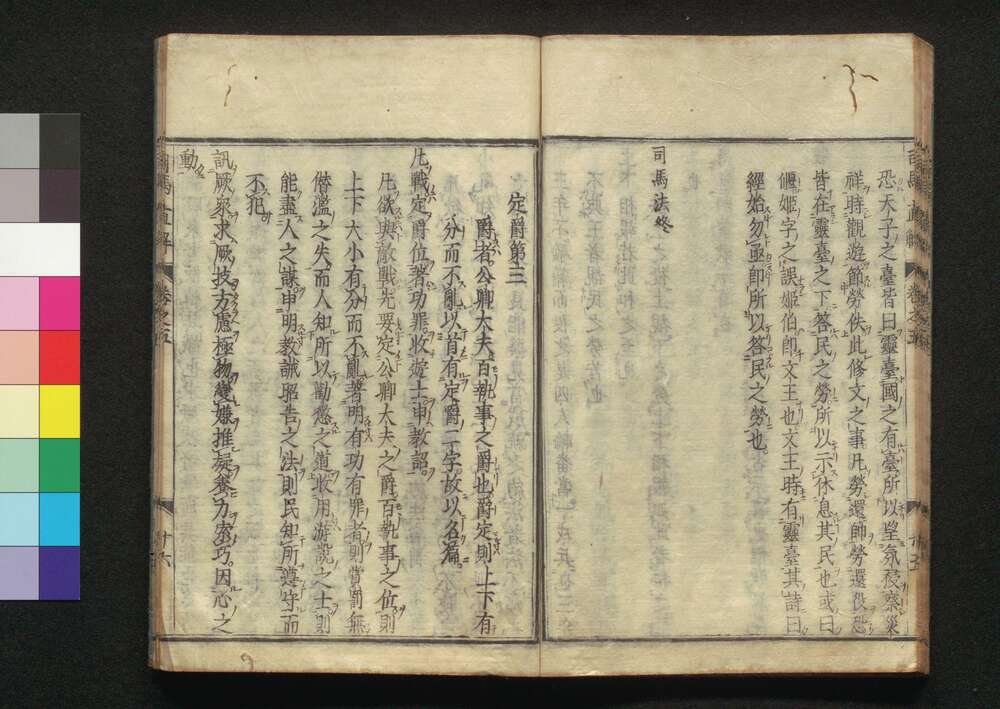 恐天子之臺皆曰靈臺國之有臺所以望氛祲察災
祥時觀遊節勞佚此修文之事凡勞還師勞還役恐
皆在靈臺之下答民之勞所以示休息其民也或曰
偃姬字之誤姬伯卽文王也文王時有靈臺其詩曰
經始勿亟卽所以答民之勞也
司馬法終
定爵第三
爵者公卿大夫百執事之爵也爵定則上下有
分而不亂以首有定爵二字故以名篇
凡戰定爵位著功罪收遊士申教詔
凡欲與敵戰先要定公卿大夫之爵百執事之位則
上下大小有分而不亂著明有功有罪者則賞罰無
僭濫之失而人知所以勸懲之道收用游說之士則
能盡人之謀申明教誡昭告之法則民知所遵守而
不犯
訊厥衆求厥技方慮極物變嫌推疑養力索巧因心之
動